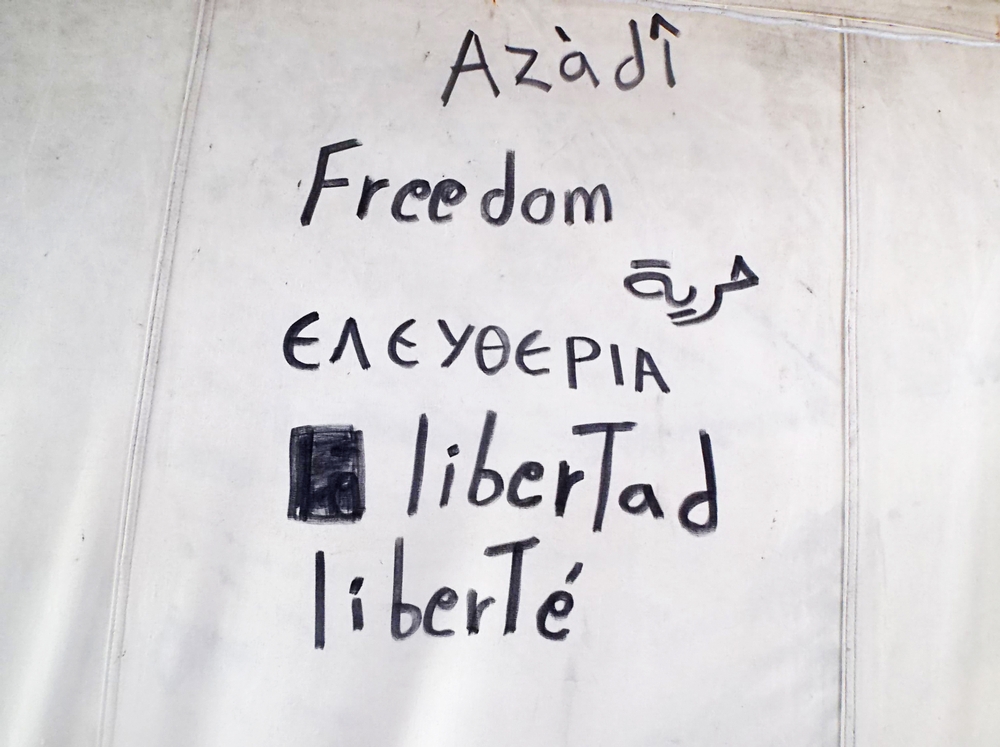 Azàdî
Freedom
حرية
ЄΛЄYΘЄPIA
liberTad
liberTé